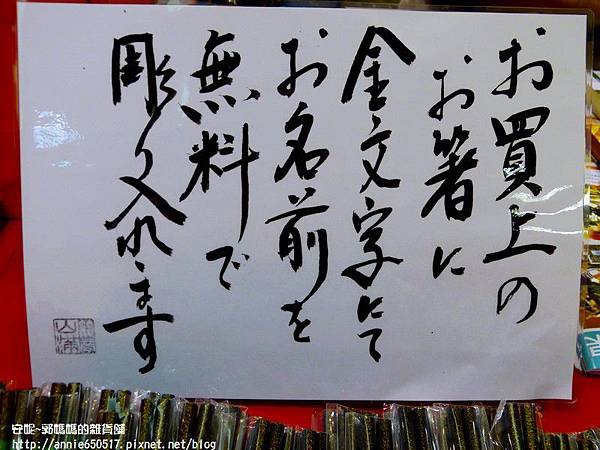 お買上の
お箸に
金文字にて
お名前を
無料で
彫り入れます
安妮~郭媽媽的雜貨舖
http://annie650517.pixnet.net/blog